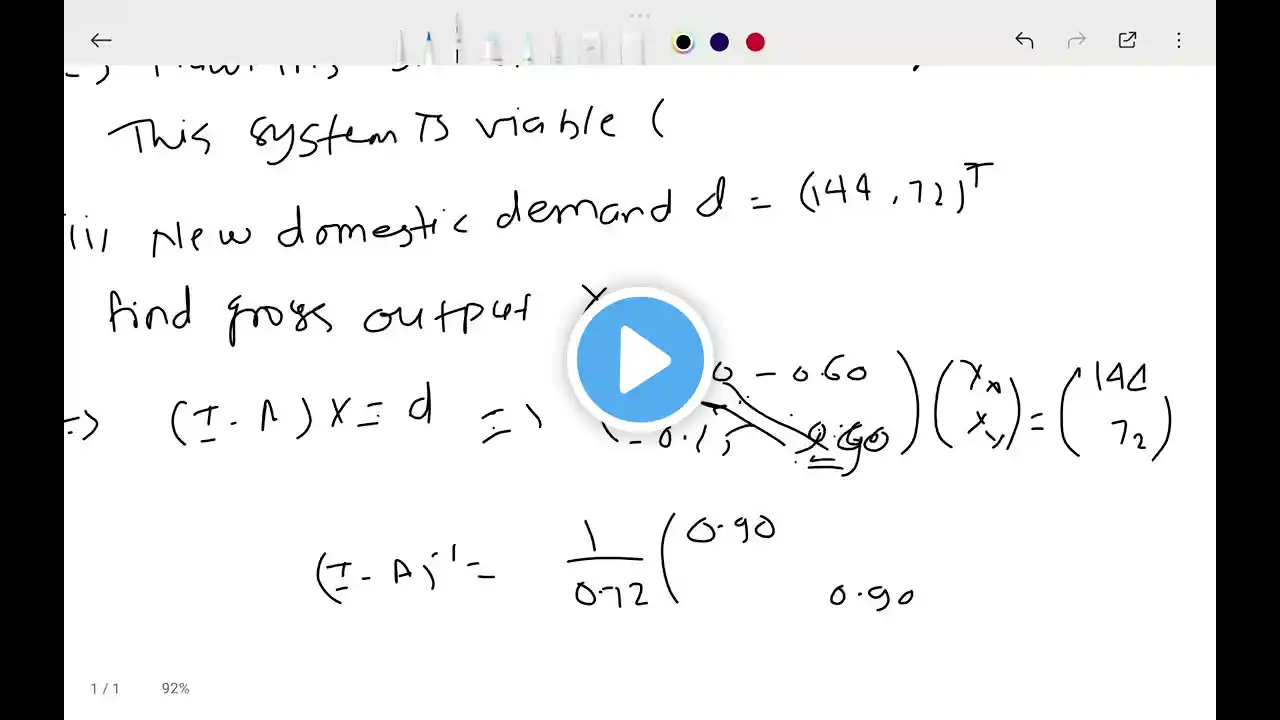 This system is viable (
iii New domestic demand d = (144, 72)^T
find gross output X
=> (I - A) X = d => 0 - 0.60 -0.15 0.90 (X_x X_y) = (144 72)
(I - A)^-1 = 1/0.72 ( 0.90
0.90
1 / 1 92%